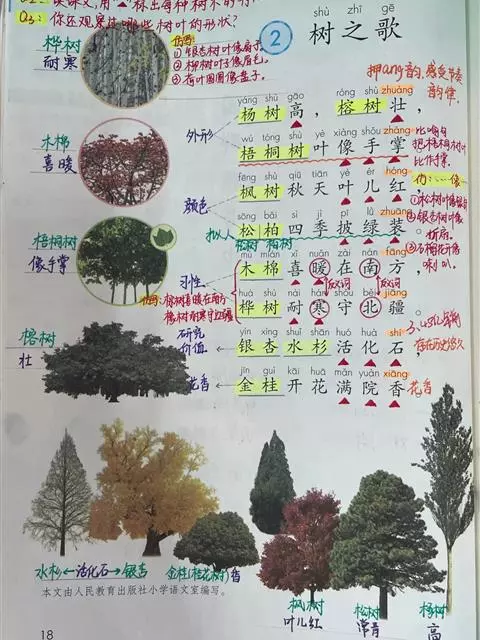 Q3：你还观察过哪些树叶的形状？
shù zhī gē
2 树之歌
桦树
耐寒
仿写：
①银杏树叶像扇子。
②柳树叶子像眉毛。
③荷叶圆圆像盘子。
押ang韵，感受节奏
韵律。
yáng shù gāo róng shù zhuàng
杨树高，榕树壮，
外形
wú tóng shù yè xiàng shǒu zhǎng
梧桐树叶像手掌。
比喻句
把梧桐树叶
比作手掌。
木棉
喜暖
fēng shù qiū tiān yè ér hóng
枫树秋天叶儿红，
颜色
sōng bǎi sì jì pī lǜ zhuāng
松柏四季披绿装。
拟人
松树 柏树
梧桐树
像手掌
mù mián xǐ nuǎn zài nán fāng
木棉喜暖在南方，
习性
反义词 反义词
huà shù nài hán shǒu běi jiāng
桦树耐寒守北疆。
榕树
壮
研究
价值
yín xìng shuǐ shān huó huà shí
银杏水杉活化石，
存在历史悠久
jīn guì kāi huā mǎn yuàn xiāng
金桂开花满院香。
花香
花香
水杉←活化石→银杏
金桂(桂花树)香
枫树
叶儿红
松树
常青
杨树
高
本文由人民教育出版社小学语文室编写。
18